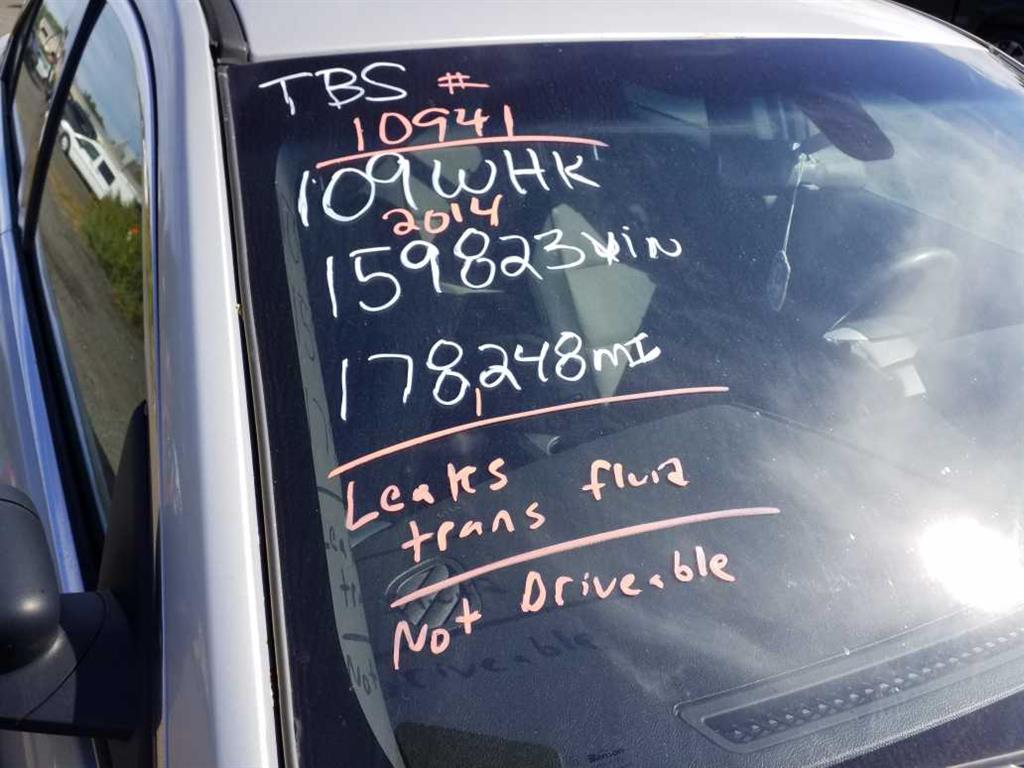 TBS #
10941
109WHK
2014
159823 VIN
178,248 MI
Leaks
trans fluid
Not Driveable